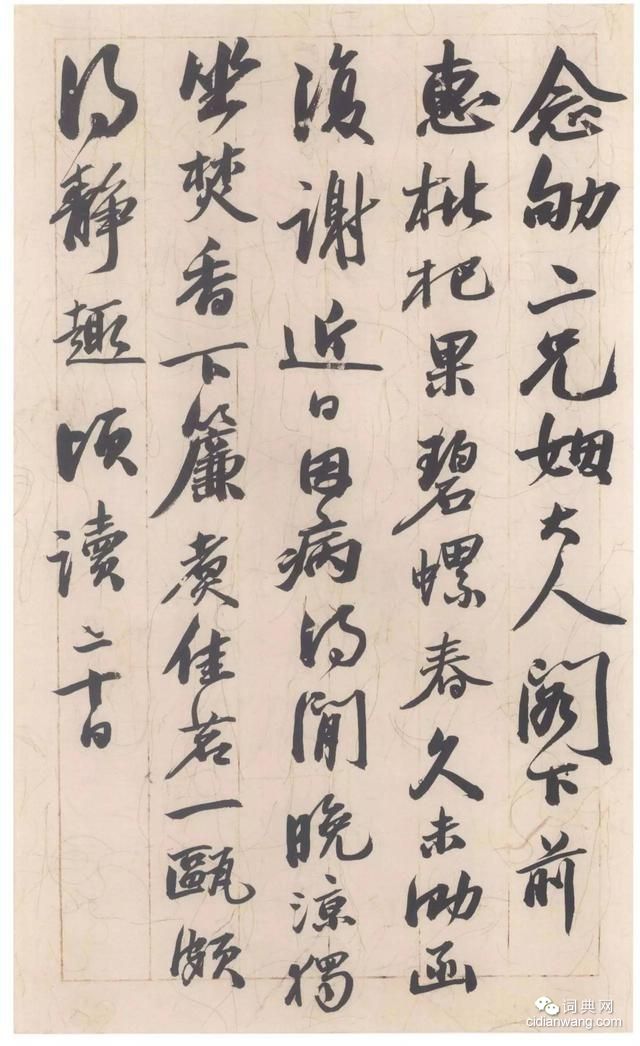 念劬二兄姻大人閣下前
惠枇杷果碧螺春久未泐函
復謝近日因病得閒晚涼獨
坐焚香下簾煮佳茗一甌頗
得靜趣頃讀二十日
词典网
cidianwang.com